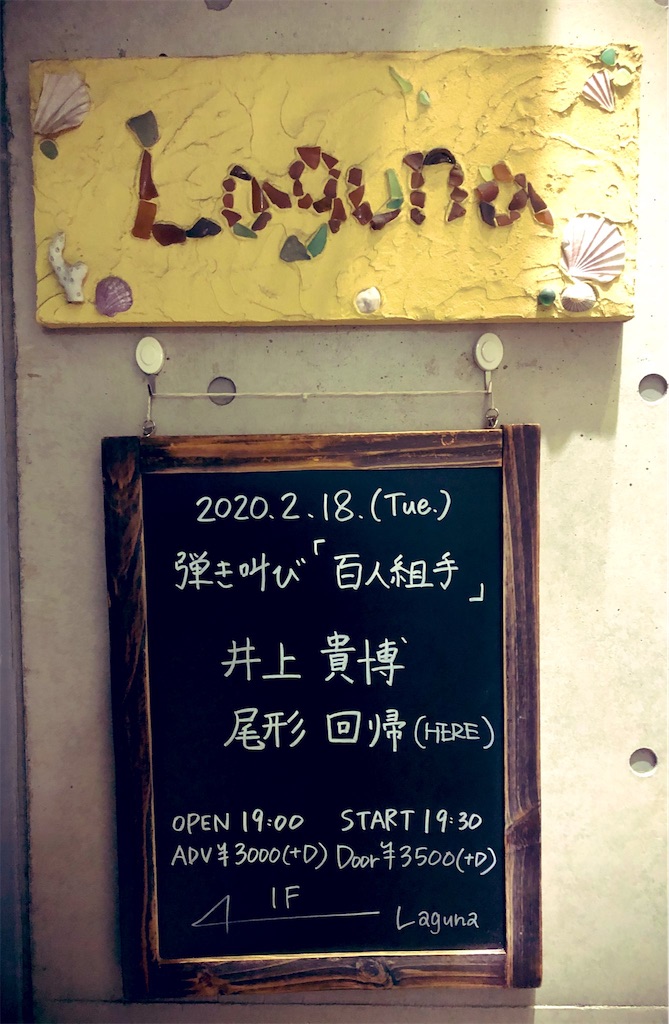 Laguna
2020.2.18.(Tue.)
弾き叫び「百人組手」
井上 貴博
尾形 回帰 (HERE)
OPEN 19:00 START 19:30
ADV¥3000(+D) Door¥3500(+D)
1F
Laguna